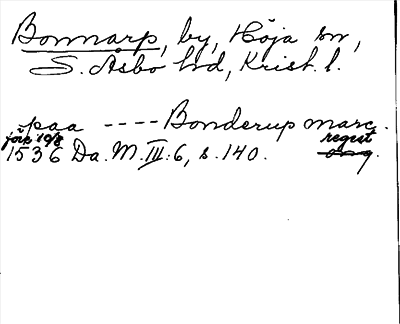 Bonnarp, by, Höja sn,
S. Åsbo hd, Krist. l.
paa ---- Bonderup marc.
förk 10/8 regest
1536 Da. M. III. 6, s. 140. orig.